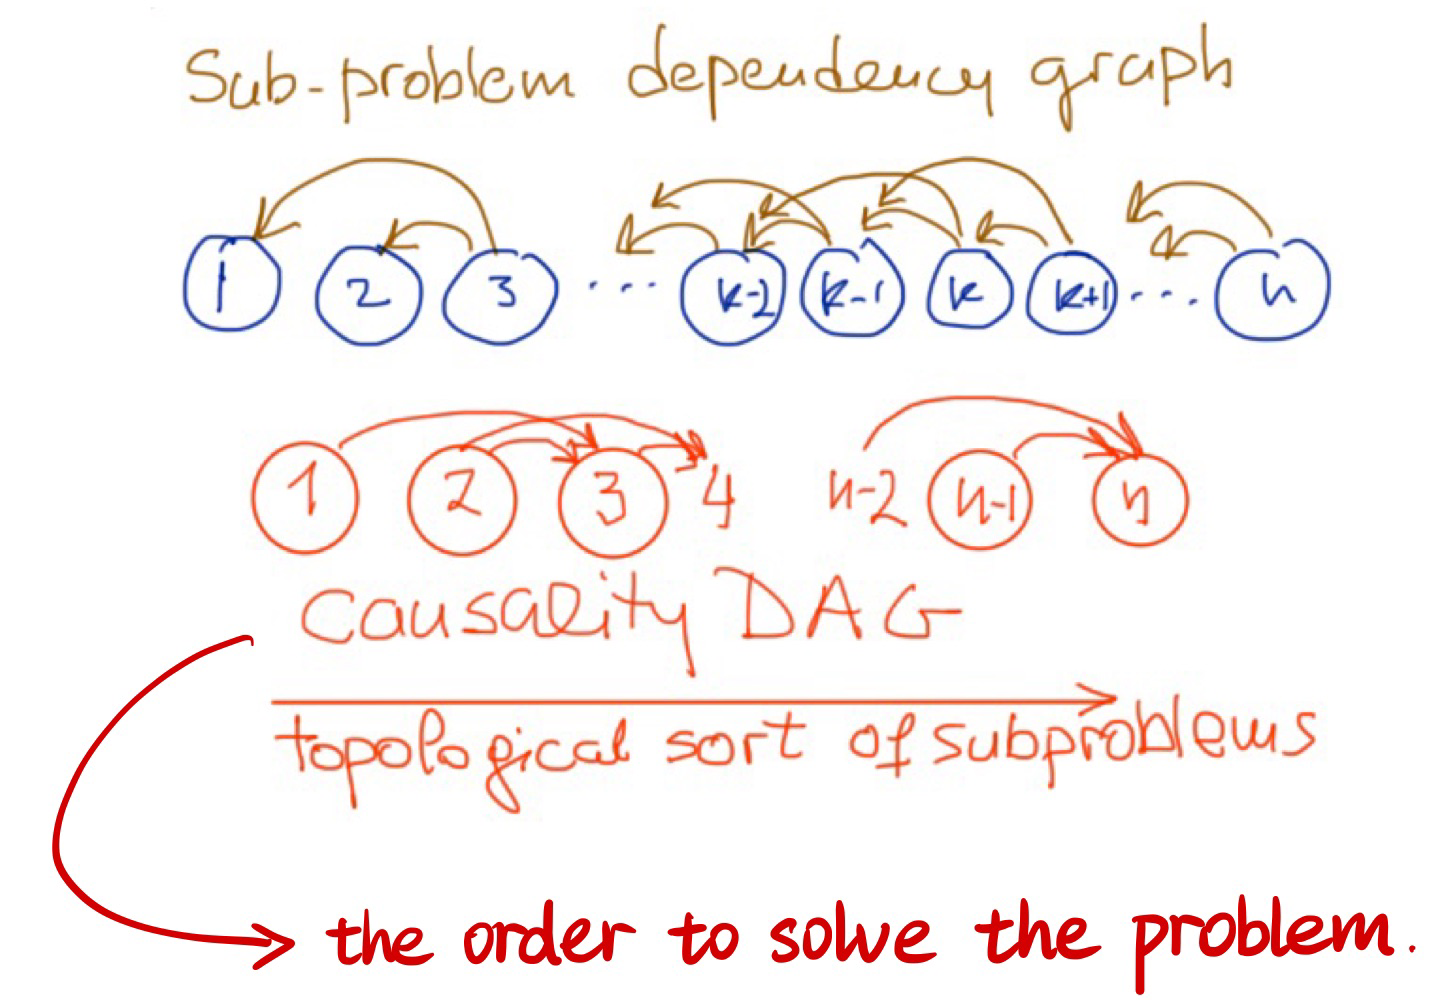 Sub-problem dependency graph
1 2 3 ... k-2 k-1 k k+1 ... n
1 2 3 4 n-2 n-1 n
Causality DAG
topological sort of subproblems
the order to solve the problem.